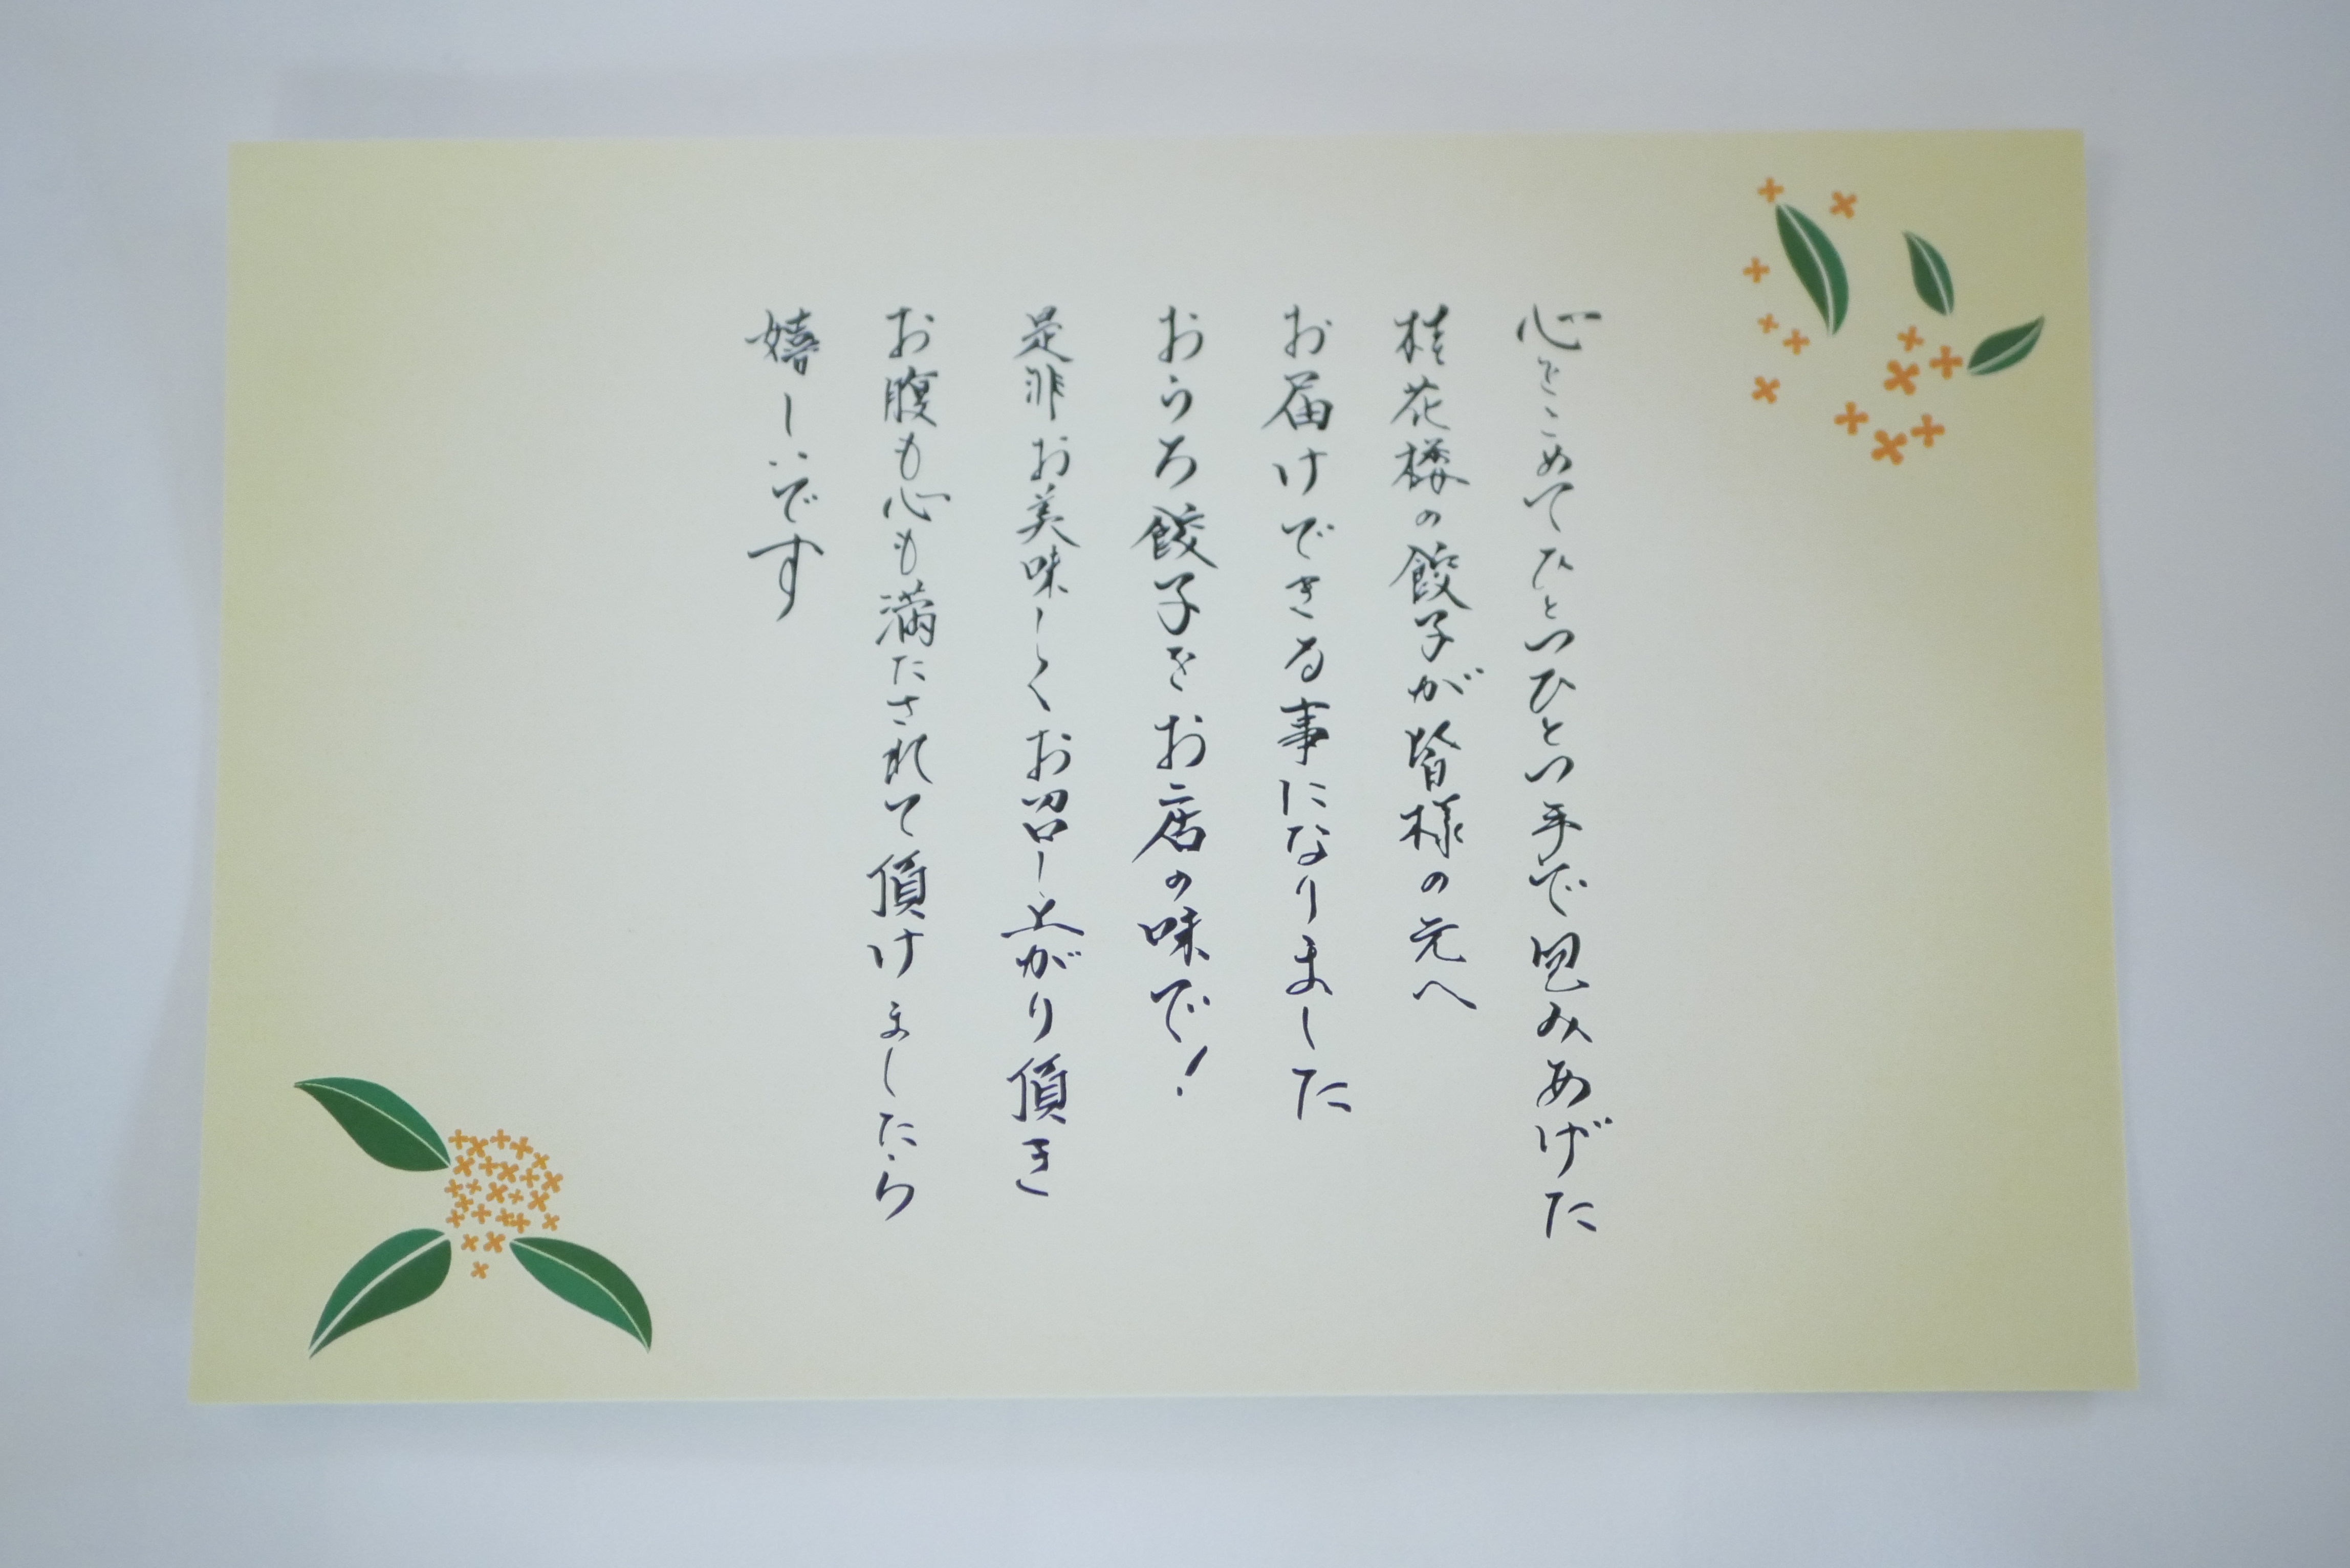 心をこめてひとつひとつ手で包みあげた
桂花楼の餃子が皆様の元へ
お届けできる事になりました
おうち餃子をお店の味で!
是非お美味しくお召し上がり頂き
お腹も心も満たされて頂けましたら
嬉しいです